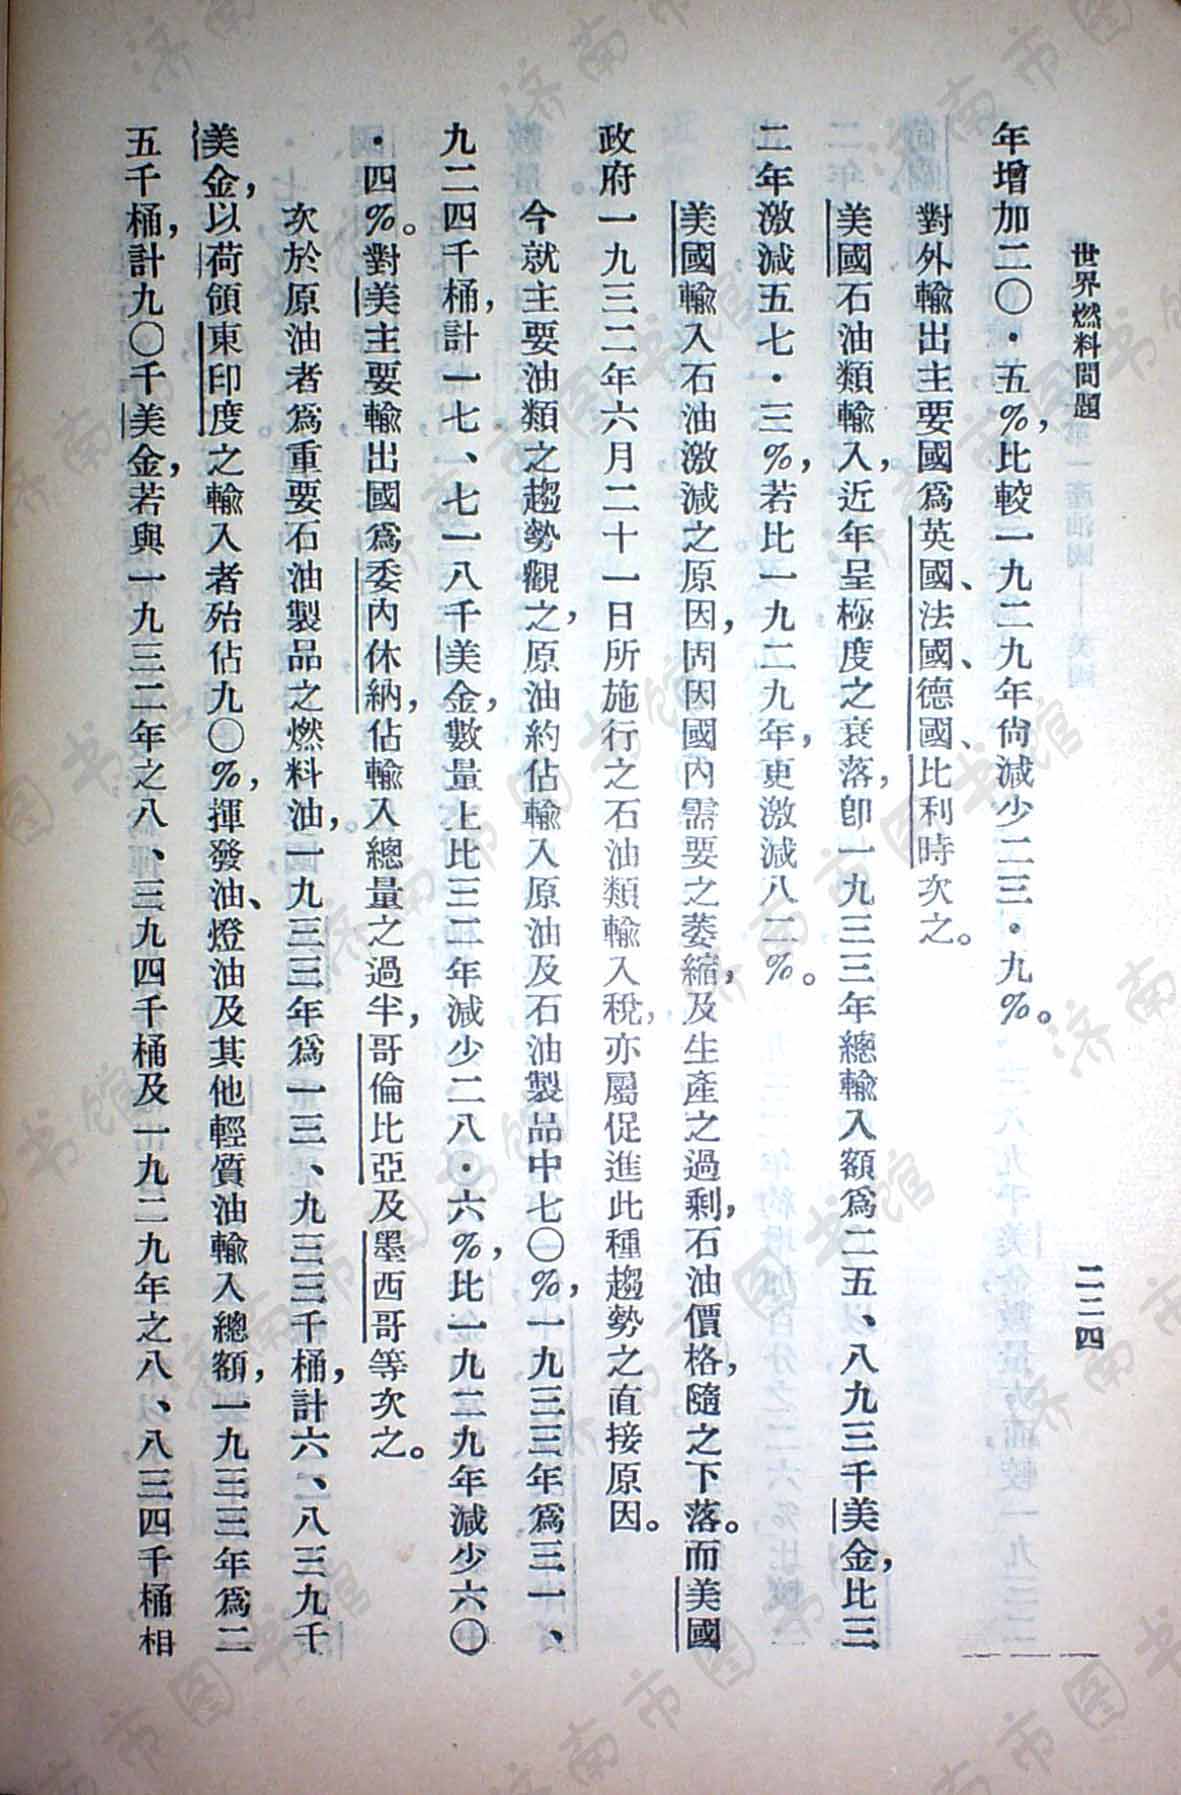 世界燃料問題
二二四
年增加二〇・五%，比較一九二九年尙減少二三・九%。
對外輸出主要國爲英國、法國、德國、比利時次之。
美國石油類輸入，近年呈極度之衰落，卽一九三三年總輸入額爲二五、八九三千美金，比三
二年激減五七・三%，若比一九二九年，更激減八二%。
美國輸入石油激減之原因，固因國內需要之萎縮，及生產之過剩，石油價格，隨之下落。而美國
政府一九三二年六月二十一日所施行之石油類輸入稅，亦屬促進此種趨勢之直接原因。
今就主要油類之趨勢觀之，原油約佔輸入原油及石油製品中七〇%，一九三三年爲三一、
九二四千桶，計一七、七一八千美金，數量上比三二年減少二八・六%，比一九二九年減少六〇
・四%。對美主要輸出國爲委內休納，佔輸入總量之過半，哥倫比亞及墨西哥等次之。
次於原油者爲重要石油製品之燃料油，一九三三年爲一三、九三三千桶，計六、八三九千
美金，以荷領東印度之輸入者殆佔九〇%，揮發油、燈油及其他輕質油輸入總額，一九三三年爲二
五千桶，計九〇千美金，若與一九三二年之八、三九四千桶及一九二九年之八、八三四千桶相
济南市图书馆